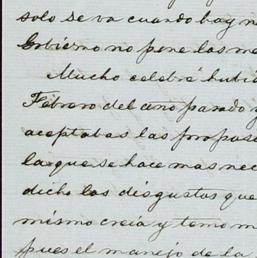 solo se va cuando hay n
Gobierno no pone los me
Mucho celebré hubi
Febrero del año pasado y
aceptabas las propose
la que se hace mas nec
dicho los disgustos que
mismo creia y temo m
pues el manejo de la